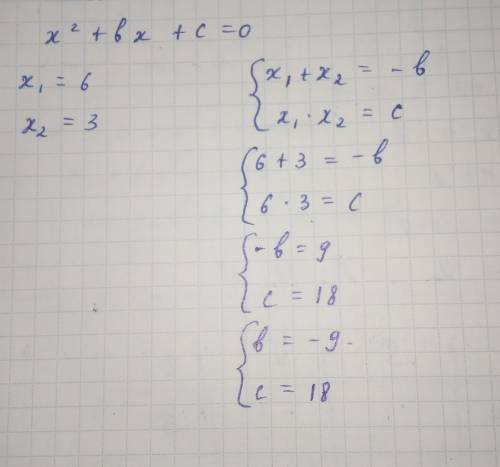 x² + bx + c = 0
x₁ = 6
x₂ = 3
x₁ + x₂ = - b
x₁ · x₂ = c
6 + 3 = - b
6 · 3 = c
- b = 9
c = 18
b = - 9
c = 18